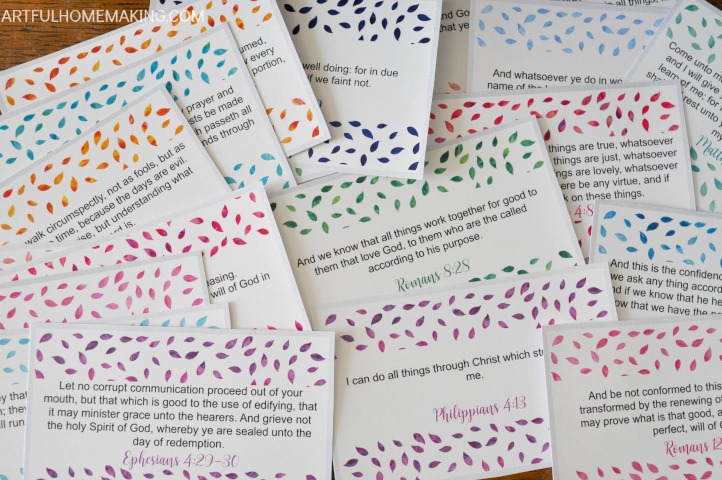 ARTFULHOMEMAKING.COM
well doing: for in due
if we faint not.
And whatsoever ye do in
name of the
Come unto
and I will give
learn of me; for
rest unto
prayer and
be made
passeth all
through
every
portion,
walk circumspectly, not as fools, but as
time, because the days are evil.
but understanding what
is.
things are true, whatsoever
things are just, whatsoever
things are lovely, whatsoever
be any virtue, and if
on these things.
4:8
And we know that all things work together for good to
them that love God, to them who are the called
according to his purpose.
Romans 8:28
will of God in
And this is the
we ask any thing
and if we know that he
that we have the
I can do all things through Christ which
me.
Philippians 4:13
Let no corrupt communication proceed out of your
mouth, but that which is good to the use of edifying, that
it may minister grace unto the hearers. And grieve not
the holy Spirit of God, whereby ye are sealed unto the
day of redemption.
Ephesians 4:29-30
And be not conformed to this
transformed by the renewing of
may prove what is that good,
perfect, will of
Romans 12